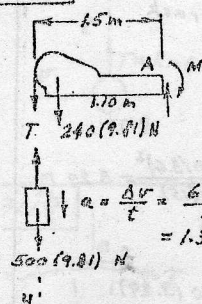 1.5 m
A M
1.10 m
T 240(9.81) N
a = Δv/t = 6
= 1.3
500(9.81) N